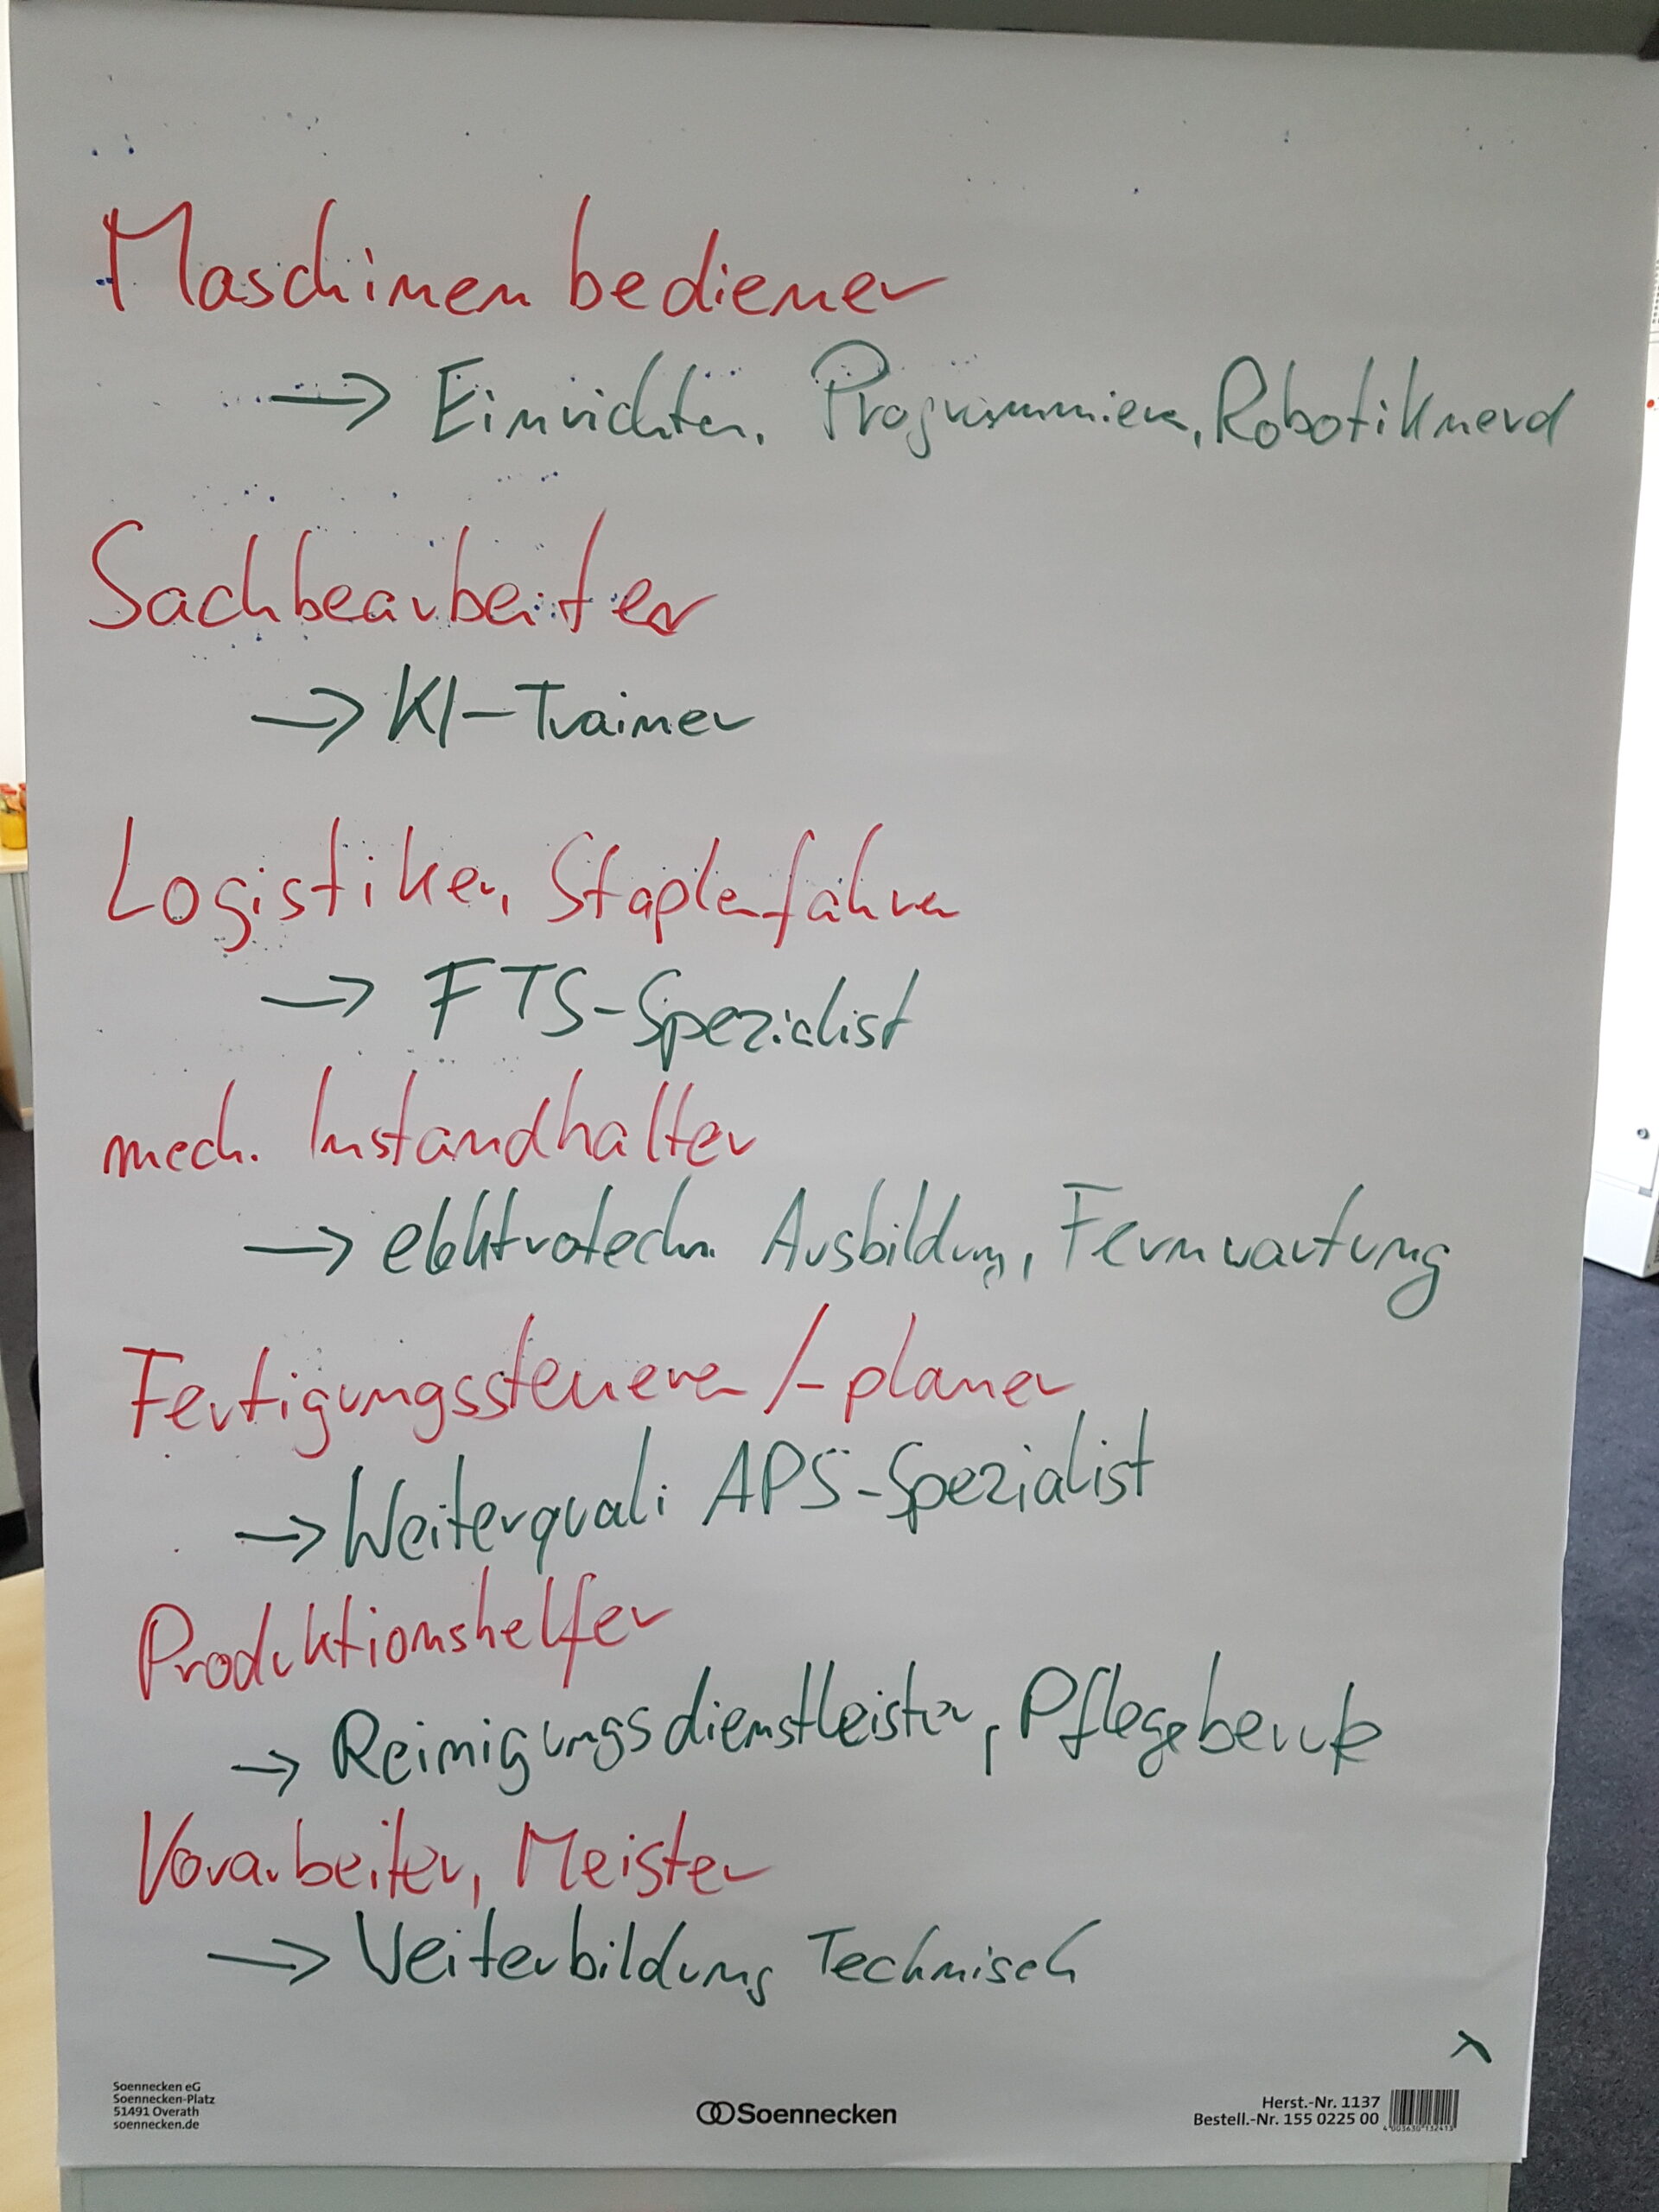 Maschinenbediener
→ Einrichten, Programmieren, Robotiknerd
Sachbearbeiter
→ KI-Trainer
Logistiker, Staplerfahrer
→ FTS-Spezialist
mech. Instandhalter
→ elektrotechn. Ausbildung, Fernwartung
Fertigungssteuerer/-planer
→ Weiterquali APS-Spezialist
Produktionshelfer
→ Reinigungsdienstleister, Pflegeberufe
Vorarbeiter, Meister
→ Weiterbildung Technisch
Soennecken eG
Soennecken-Platz
51491 Overath
soennecken.de
Soennecken
Herst.-Nr. 1137
Bestell.-Nr. 155 0225 00